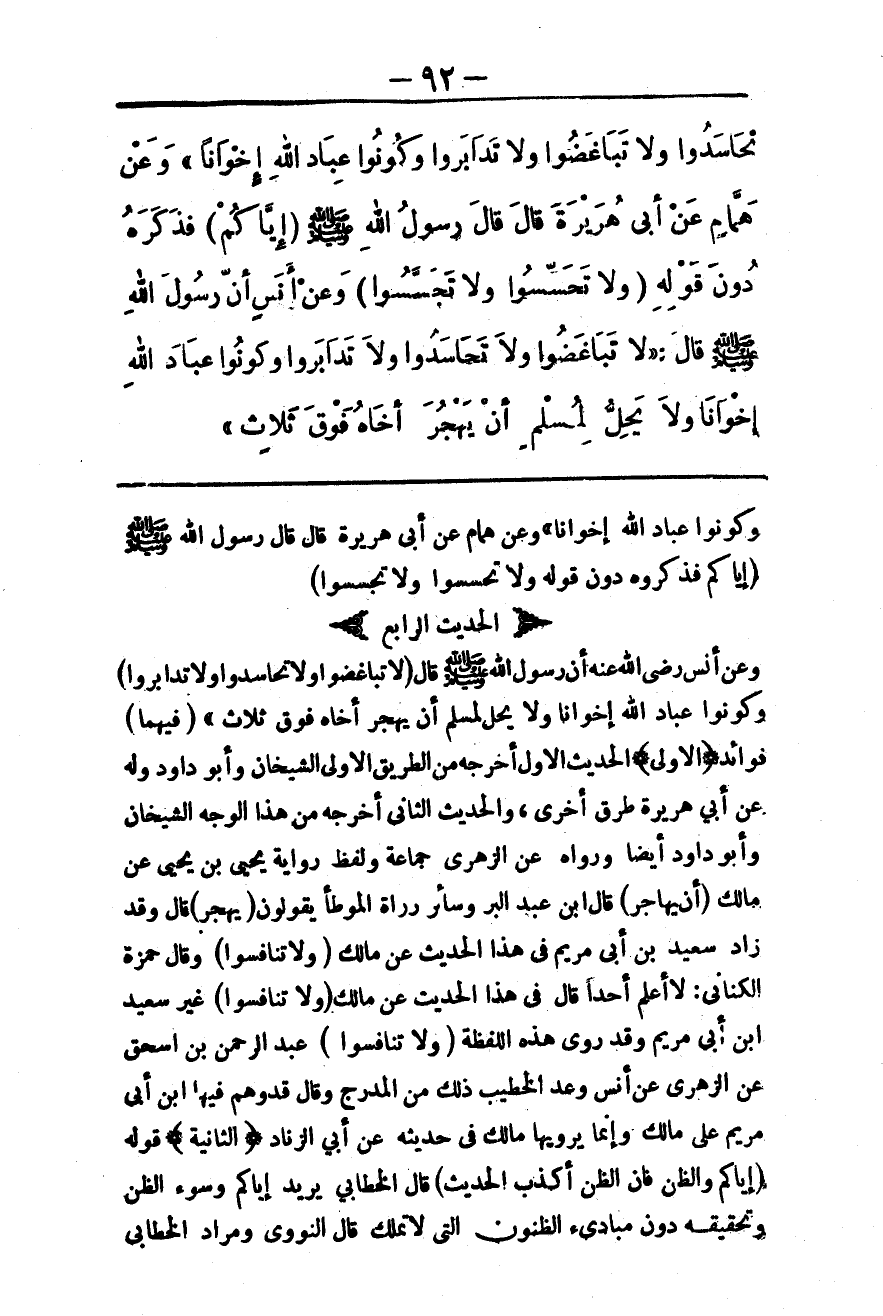 — ٩٢ —
تَحَاسَدُوا ولا تَبَاغَضُوا ولا تَدَابَروا وكُونُوا عِبَاد اللهِ إِخْوَاناً » وَعَنْ
هَمَّامٍ عَنْ أبى هُرَيْرَةَ قَالَ قَالَ رسولُ اللهِ ﷺ (إِيَّاكُمْ) فذكَرَهُ
دُونَ قَوْلِهِ ( ولا تَحَسَّسُوا ولا تَجَسَّسُوا ) وَعن أَنَسٍ أنّ رسُولَ اللهِ
ﷺ قالَ :« لا تَبَاغَضُوا ولاَ تَحَاسَدُوا ولاَ تَدَابَروا وكونُوا عبَادَ اللهِ
إخْوَانَا ولاَ يَحِلُّ لِمُسْلمٍ أنْ يَهْجُرَ أخَاهُ فَوْقَ ثَلاثٍ »
وكونوا عباد الله إخوانا» وعن همام عن أبى هريرة قال قال رسول الله ﷺ
(إياكم فذكروه دون قوله ولا تحسسوا ولا تجسسوا)
الحديث الرابع
وعن أنس رضى الله عنه أن رسول الله ﷺ قال (لا تباغضوا ولا تحاسدوا ولا تدابروا)
وكونوا عباد الله إخوانا ولا يحل لمسلم أن يهجر أخاه فوق ثلاث » ( فيهما )
فوائد ﴿الاولى﴾ الحديث الاول أخرجه من الطريق الاولى الشيخان وأبو داود وله
عن أبي هريرة طرق أخرى ، والحديث الثانى أخرجه من هذا الوجه الشيخان
وأبو داود أيضا ورواه عن الزهرى جماعة ولفظ رواية يحيى بن يحيى عن
مالك (أن يهاجر) قال ابن عبد البر وسائر رراة الموطأ يقولون( يهجر) قال وقد
زاد سعيد بن أبى مريم فى هذا الحديث عن مالك ( ولا تنافسوا ) وقال حمزة
الكنانى: لا أعلم أحداً قال فى هذا الحديث عن مالك (ولا تنافسوا ) غير سعيد
ابن أبي مريم وقد روى هذه اللفظة ( ولا تنافسوا ) عبد الرحمن بن اسحق
عن الزهرى عن أنس وعد الخطيب ذلك من المدرج وقال قدوهم فيها ابن أبى
مريم على مالك وإنما يرويها مالك فى حديثه عن أبي الزناد ﴿ الثانية ﴾ قوله
(إياكم والظن فان الظن أكذب الحديث) قال الخطابي يريد إياكم وسوء الظن
وتحقيقه دون مباديء الظنون التى لا تملك قال النووى ومراد الخطابي